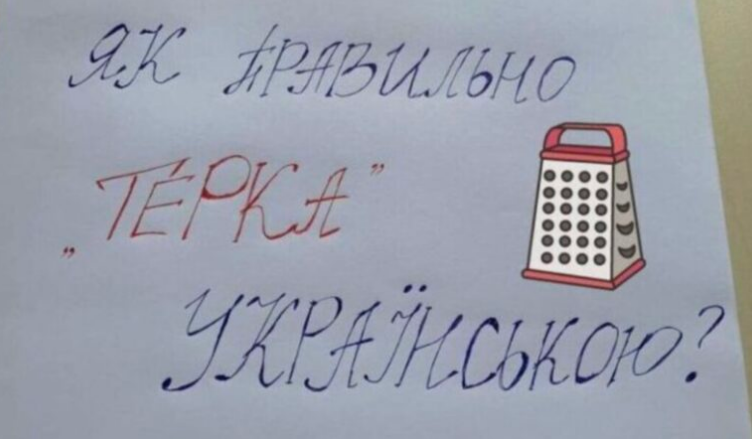 ЯК ПРАВИЛЬНО
„ТЁРКА”
УКРАЇНСЬКОЮ?